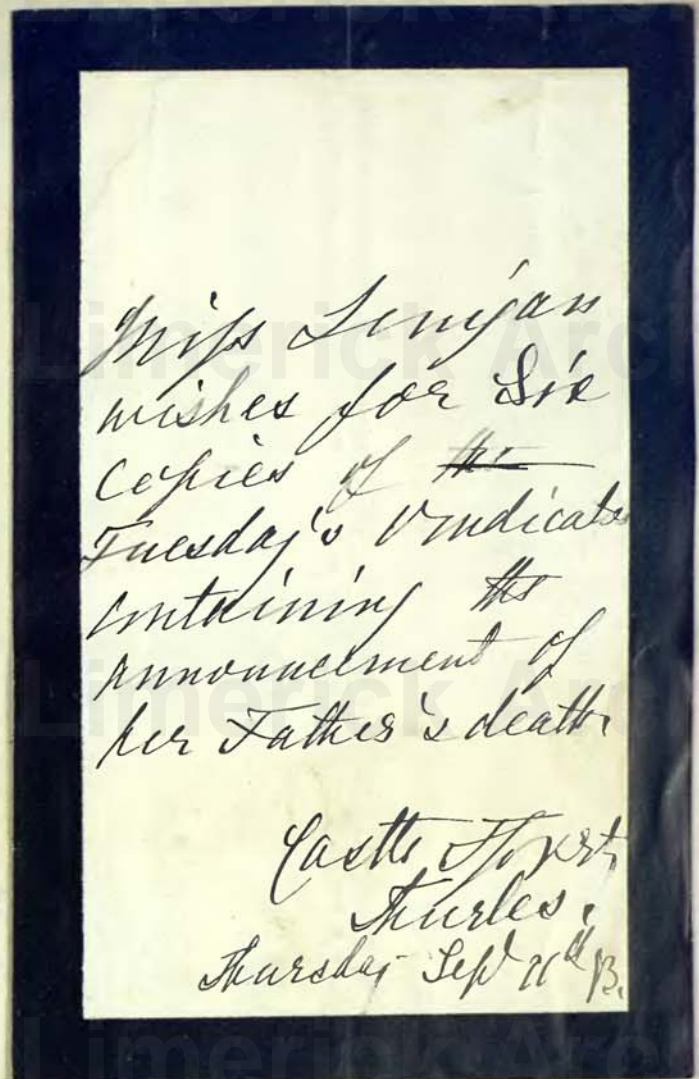 Miss Lenigan
wishes for Six
copies of the
Tuesday's Vindicator
containing the
announcement of
her Father's death.
Castle
Thurles.
Thursday Sept 11th 73.
Limerick Arch
Limerick Arch
Limerick Arch